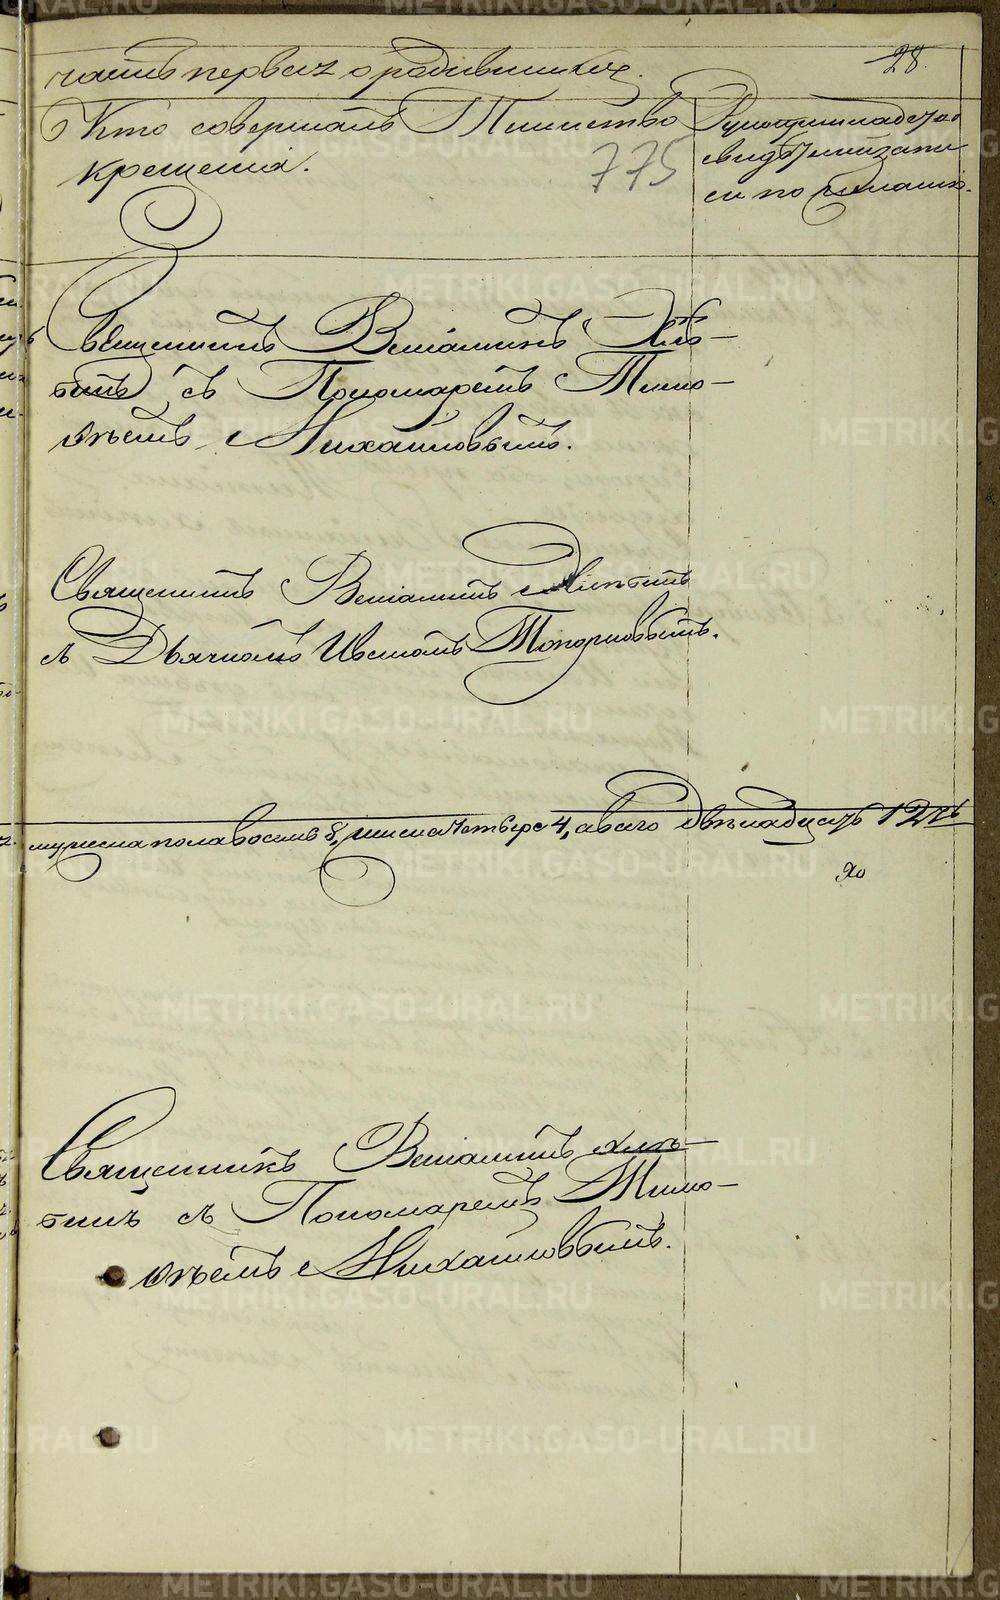 28.
часть первая о родившихся.
Кто совершалъ Таинство
крещенія.
775
Рукоприкладство
свидѣтелей записи
си по желанію.
Священникъ Веніаминъ Хлѣ-
бинъ съ Пономаремъ Тимо-
ѳеемъ Михайловымъ.
Священникъ Веніаминъ Хлѣбинъ
съ Дьячкомъ Иваномъ Топорковымъ.
мужеска пола восемь 8, женска четверо 4, а всего двѣнадцать 12ть
Священникъ Веніаминъ Хлѣ-
бинъ съ Пономаремъ Тимо-
ѳеемъ Михайловымъ.
METRIKI.GASO-URAL.RU